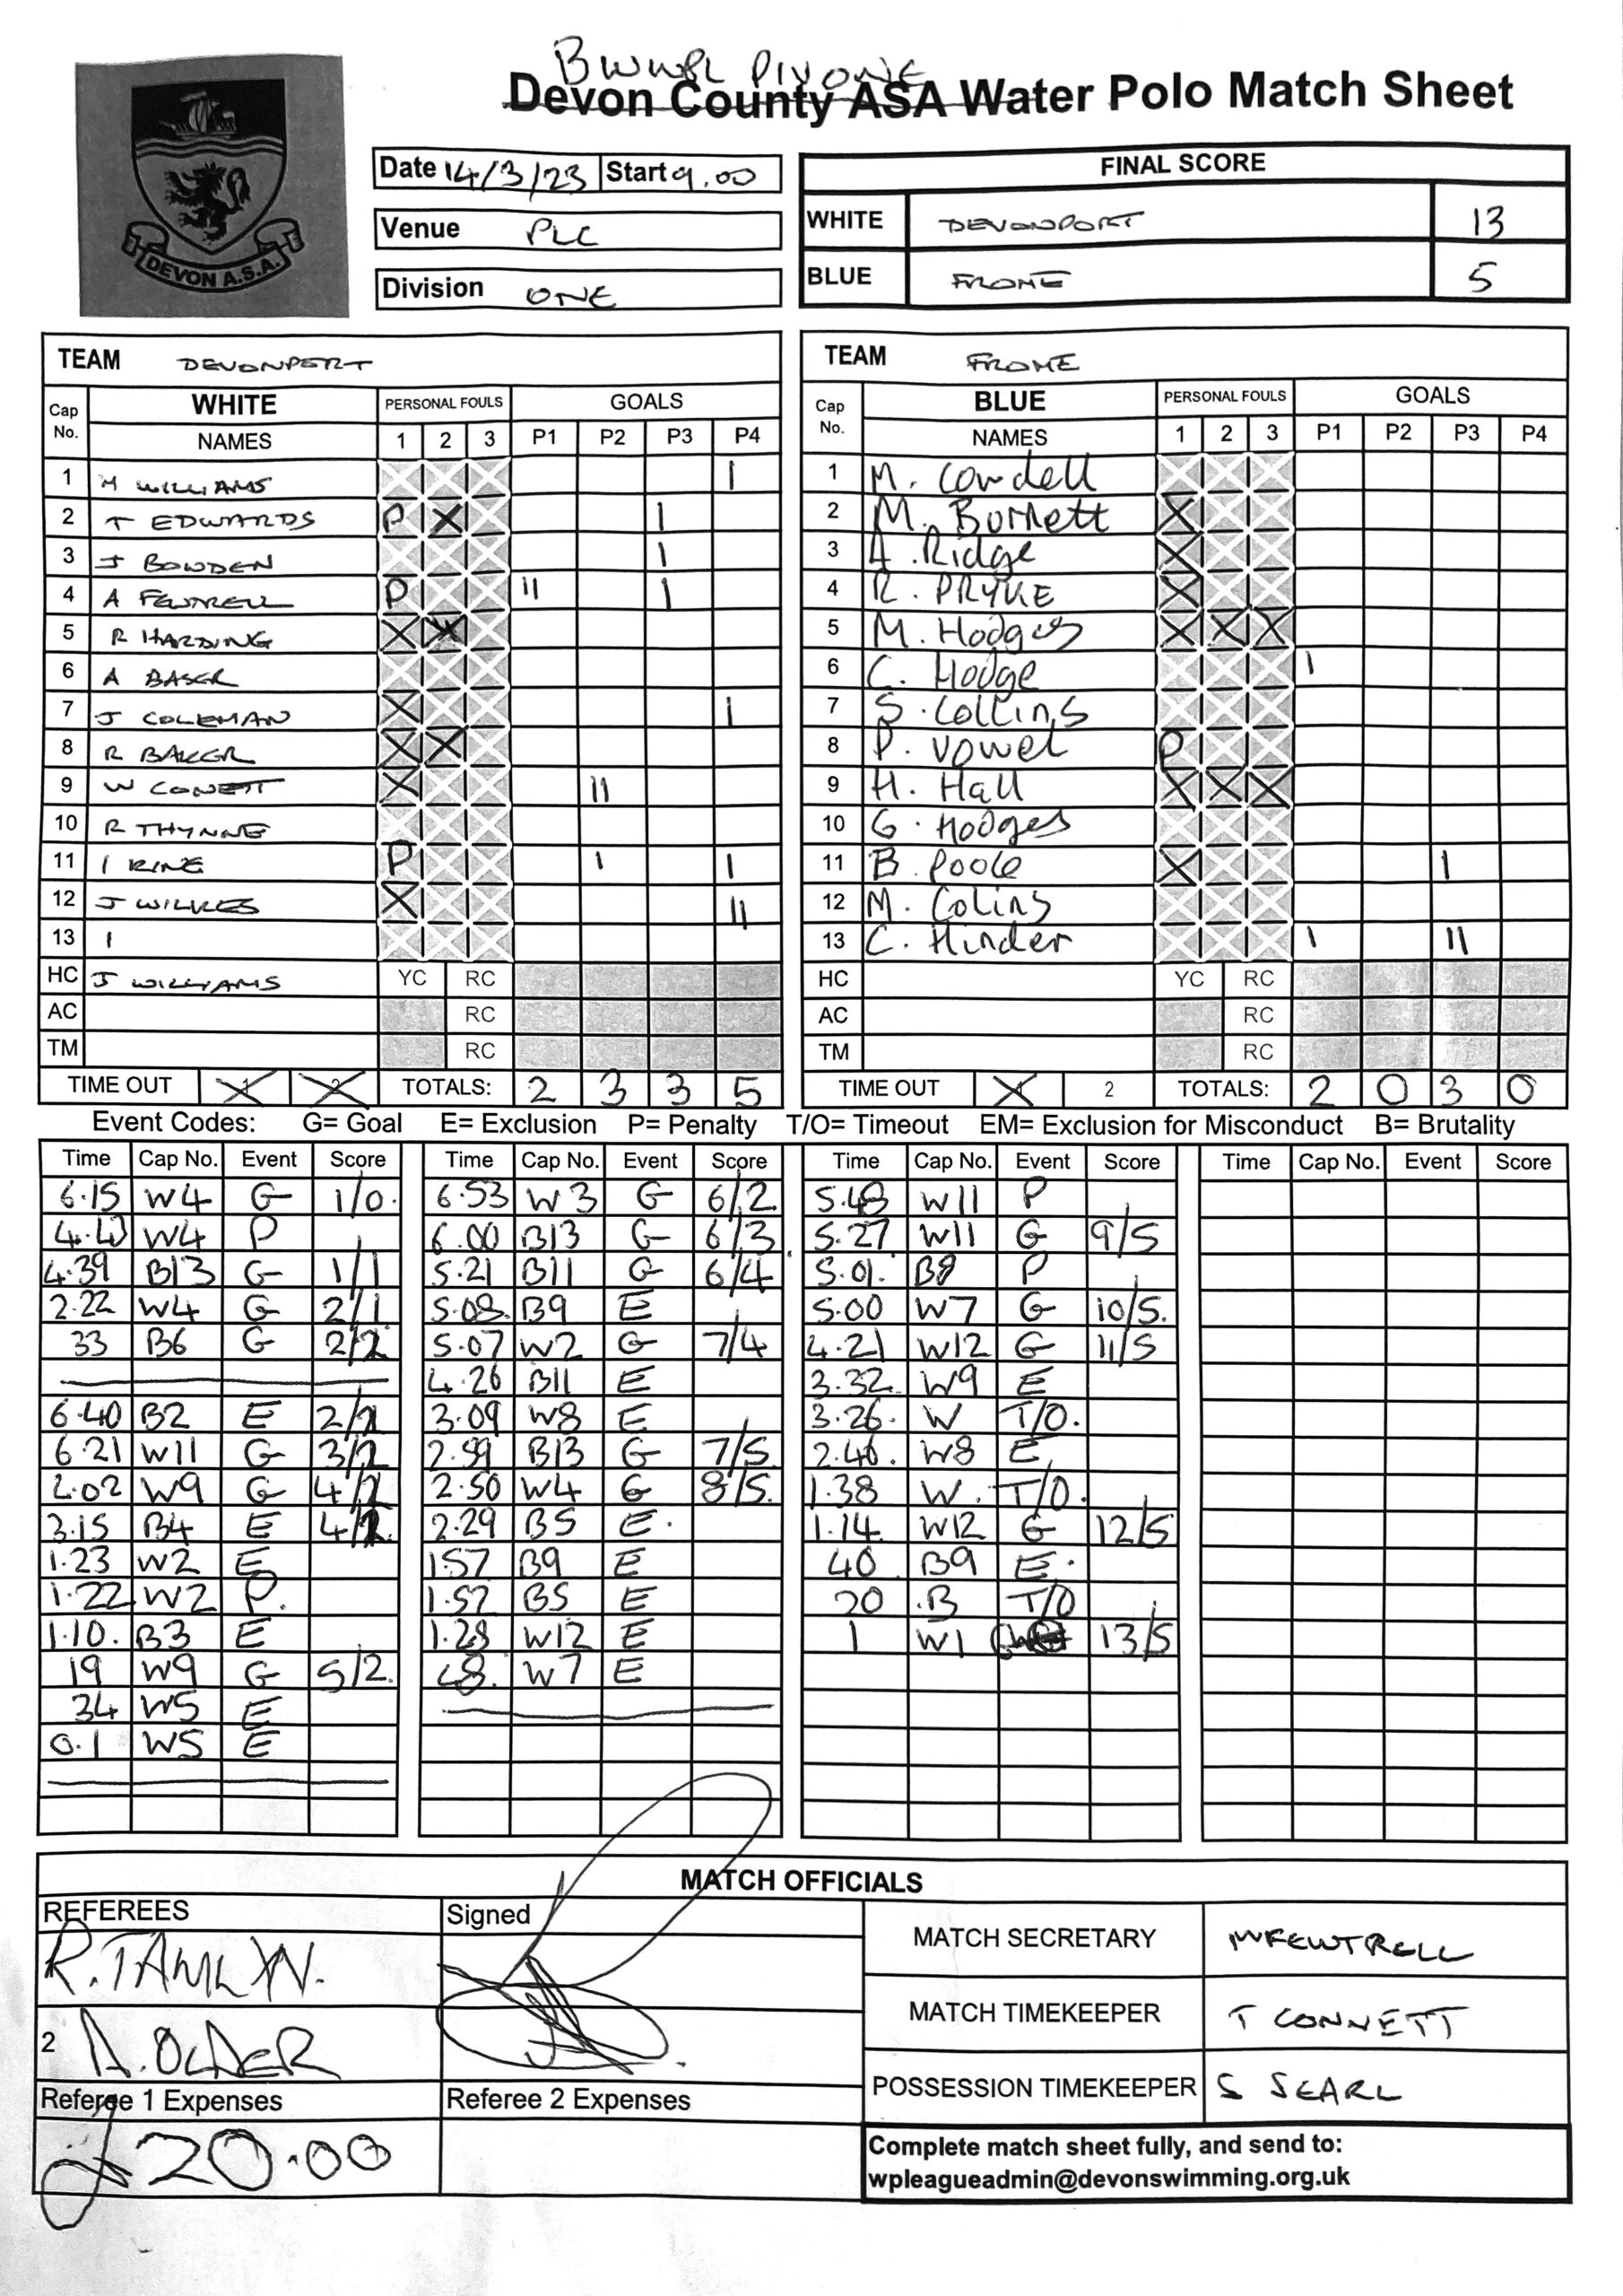 BWWPL DIV ONE
Devon County ASA Water Polo Match Sheet
DEVON A.S.A.
Date 14/3/23 Start 9.00
Venue PLC
Division ONE
FINAL SCORE
WHITE DEVONPORT 13
BLUE FROME 5
TEAM DEVONPORT
Cap No. WHITE NAMES PERSONAL FOULS 1 2 3 GOALS P1 P2 P3 P4
1 M WILLIAMS I
2 T EDWARDS P X I
3 J BOWDEN I
4 A FEWTRELL P II I
5 R HARDING X X
6 A BAKER
7 J COLEMAN X I
8 R BAKER X X
9 W CONETT X II
10 R THYNNE
11 I KING P I I
12 J WILKES X II
13 I
HC J WILLIAMS YC RC
AC RC
TM RC
TIME OUT 1 2 TOTALS: 2 3 3 5
TEAM FROME
Cap No. BLUE NAMES PERSONAL FOULS 1 2 3 GOALS P1 P2 P3 P4
1 M. Cowdell
2 M. Burnett X
3 A. Ridge X
4 R. PRYKE X
5 M. Hodges X X X
6 C. Hodge I
7 S. Collins
8 P. Vowel P
9 H. Hall X X X
10 G. Hodges
11 B. Poole X I
12 M. Colins
13 C. Hinder I II
HC YC RC
AC RC
TM RC
TIME OUT 1 2 TOTALS: 2 0 3 0
Event Codes: G= Goal E= Exclusion P= Penalty T/O= Timeout EM= Exclusion for Misconduct B= Brutality
Time Cap No. Event Score
6.15 W4 G 1/0.
W4 P
4.39 B13 G 1/1
2.22 W4 G 2/1
33 B6 G 2/2
6.40 B2 E 2/2
6.21 W11 G 3/2
W9 G 4/2
3.15 B4 E 4/2
1.23 W2 E
1.22 W2 P.
1.10. B3 E
19 W9 G 5/2.
34 W5 E
0.1 W5 E
Time Cap No. Event Score
6.53 W3 G 6/2
6.00 B13 G 6/3
5.21 B11 G 6/4
5.08. B9 E
5.07 W2 G 7/4
4.26 B11 E
3.09 W8 E
2.59 B13 G 7/5
2.50 W4 G 8/5.
2.29 B5 E.
1.57 B9 E
1.57 B5 E
1.28 W12 E
48. W7 E
Time Cap No. Event Score
5.48 W11 P
5.27 W11 G 9/5
5.01. B8 P
5.00 W7 G 10/5.
4.21 W12 G 11/5
3.32 W9 E
3.26. W T/O.
2.46. W8 E
1.38 W. T/O.
1.14. W12 G 12/5
40 B9 E.
20 .B T/O
1 W1 13/5
Time Cap No. Event Score
MATCH OFFICIALS
REFEREES Signed
R. TAMLYN.
2 A. OLVER
Referee 1 Expenses Referee 2 Expenses
£20.00
MATCH SECRETARY M FEWTRELL
MATCH TIMEKEEPER T CONNETT
POSSESSION TIMEKEEPER S SEARL
Complete match sheet fully, and send to:
wpleagueadmin@devonswimming.org.uk